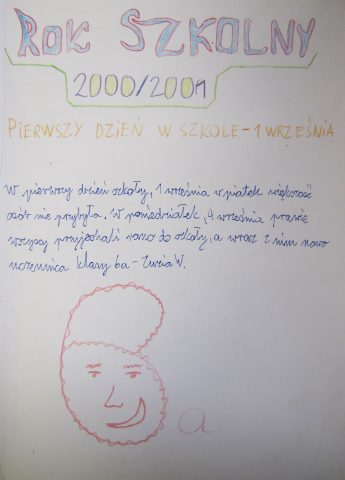 ROK SZKOLNY
2000/2001
PIERWSZY DZIEŃ W SZKOLE - 1 WRZEŚNIA
W pierwszy dzień szkoły, 1 września w piątek większość
osób nie przybyła. W poniedziałek, 4 września prawie
wszyscy przyjechali rano do szkoły, a wraz z nimi nowa
uczennica klasy 6a - Zuzia W.
6a